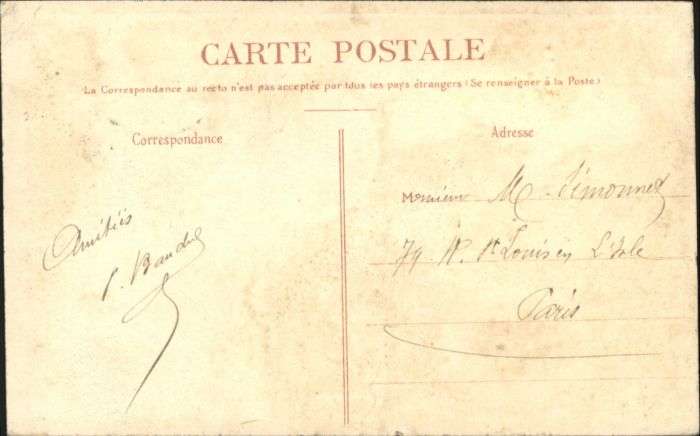 CARTE POSTALE
La Correspondance au recto n'est pas acceptée par tous les pays étrangers (Se renseigner à la Poste.)
Correspondance
Adresse
Amitiés
Monsieur M. Simonnet
79 R. St Louis en L'Isle
Paris